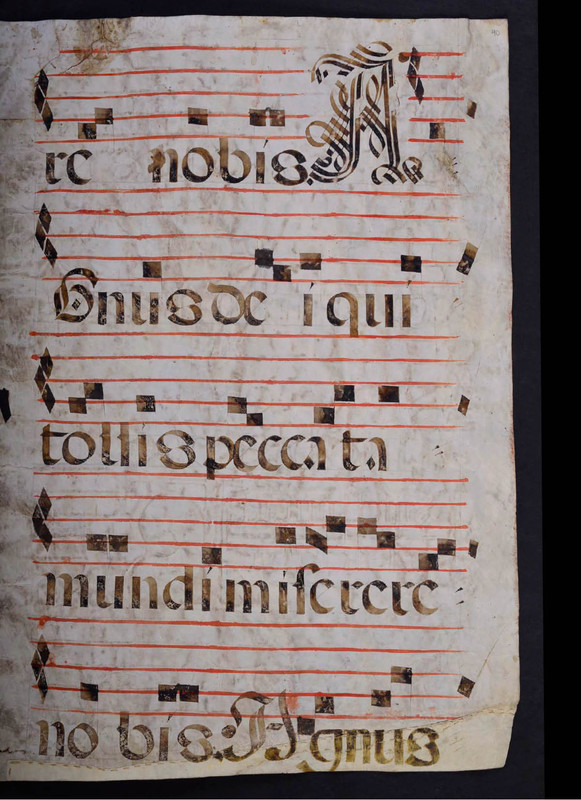 40
re nobis A
Gnus de i qui
tollis pecca ta
mundi miserere
no bis. Agnus